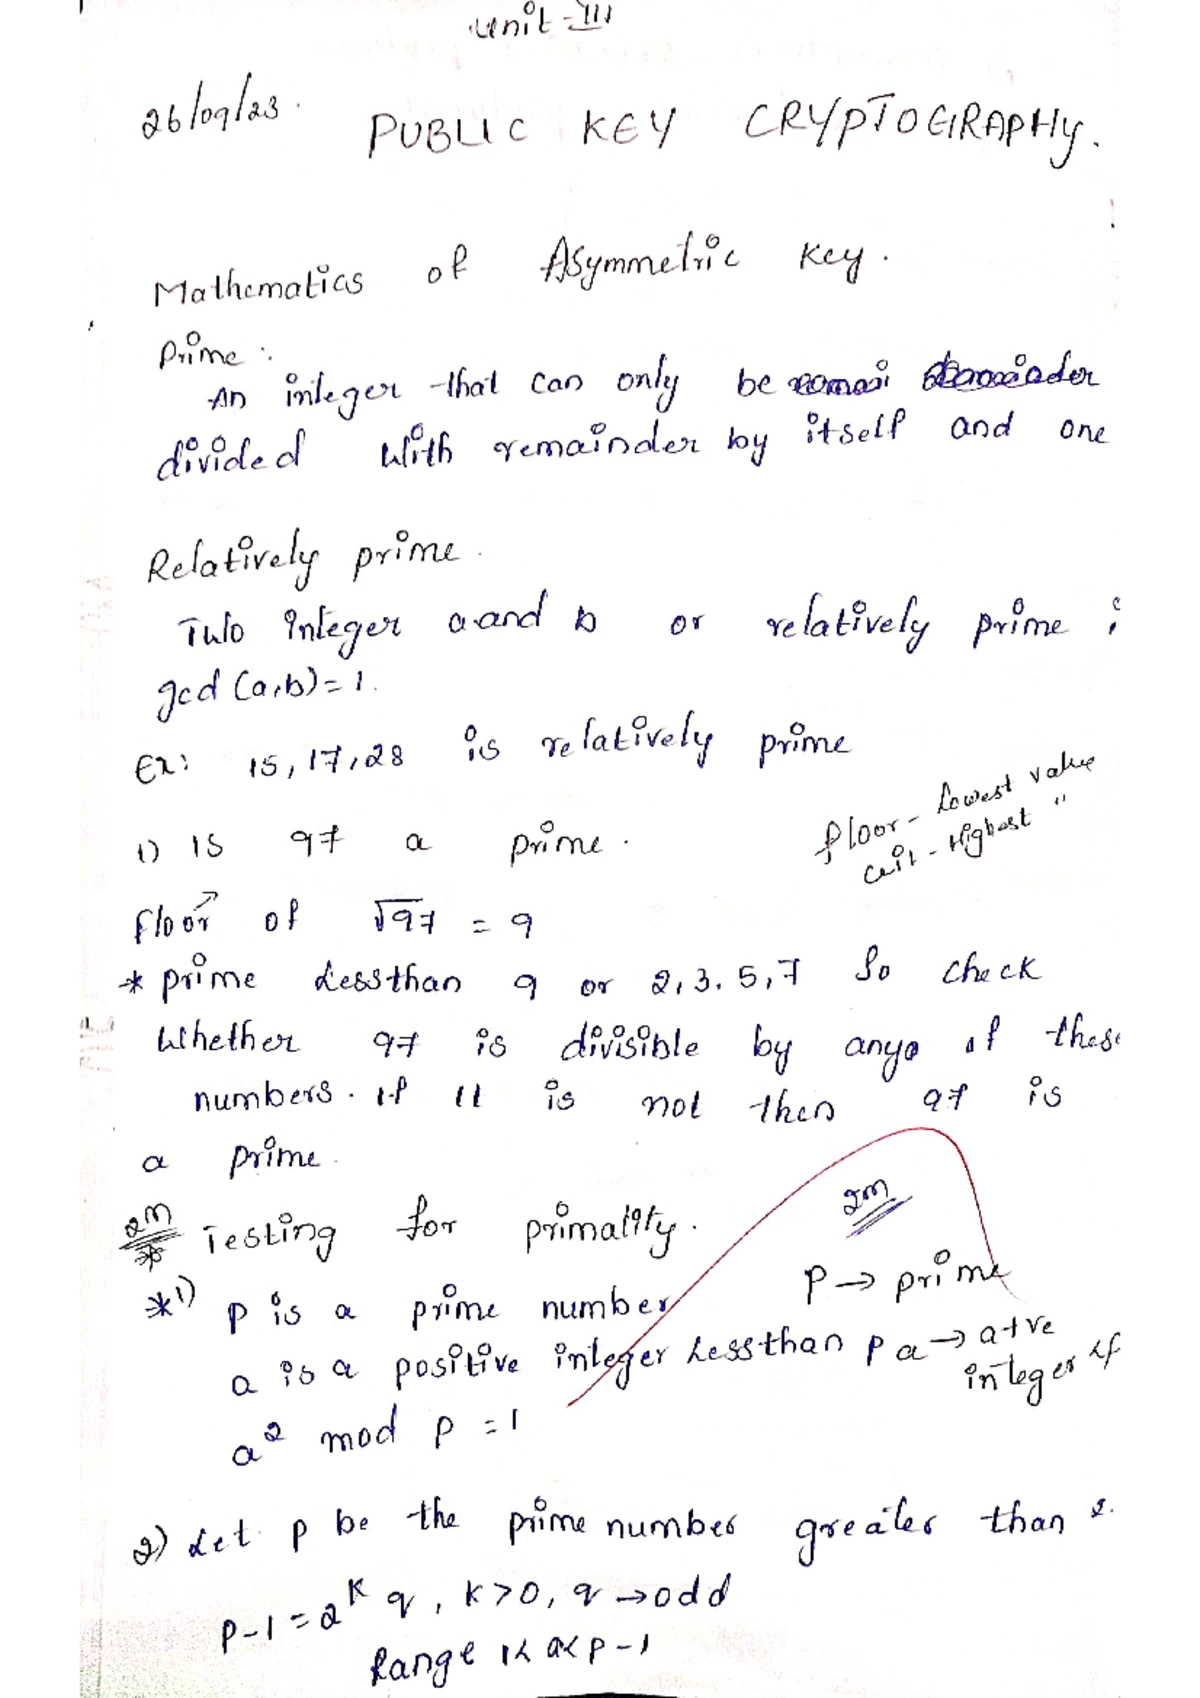 Unit-III
26/09/23.
PUBLIC KEY CRYPTOGRAPHY.
Mathematics of Asymmetric Key.
Prime:
An integer that can only be
divided with remainder by itself and one
Relatively prime.
Two integer a and b or relatively prime i
gcd (a,b)=1.
Ex: 15,17,28 is relatively prime
floor - Lowest value
ceil - Highest "
1) Is 97 a prime.
Floor of √97 = 9
* prime Lessthan 9 or 2,3,5,7 So check
Whether 97 is divisible by anyo of these
numbers. If it is not then 97 is
a prime.
2m
* Testing for primality.
2m
*1) P is a prime number
P → prime
a is a positive integer Lessthan P
a → a +ve
integer if
a² mod p = 1
2) Let p be the prime number greater than 2.
p-1 = 2^k q, k>0, q → odd
Range 1<a<p-1